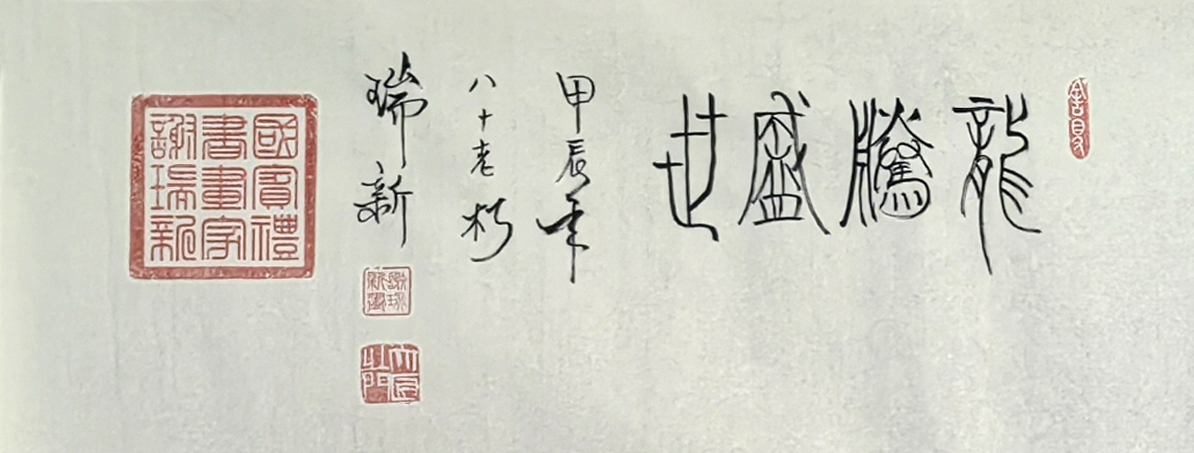 龍騰盛世
甲辰年
八十老朽
瑞新
國賓禮
書畫家
謝瑞新